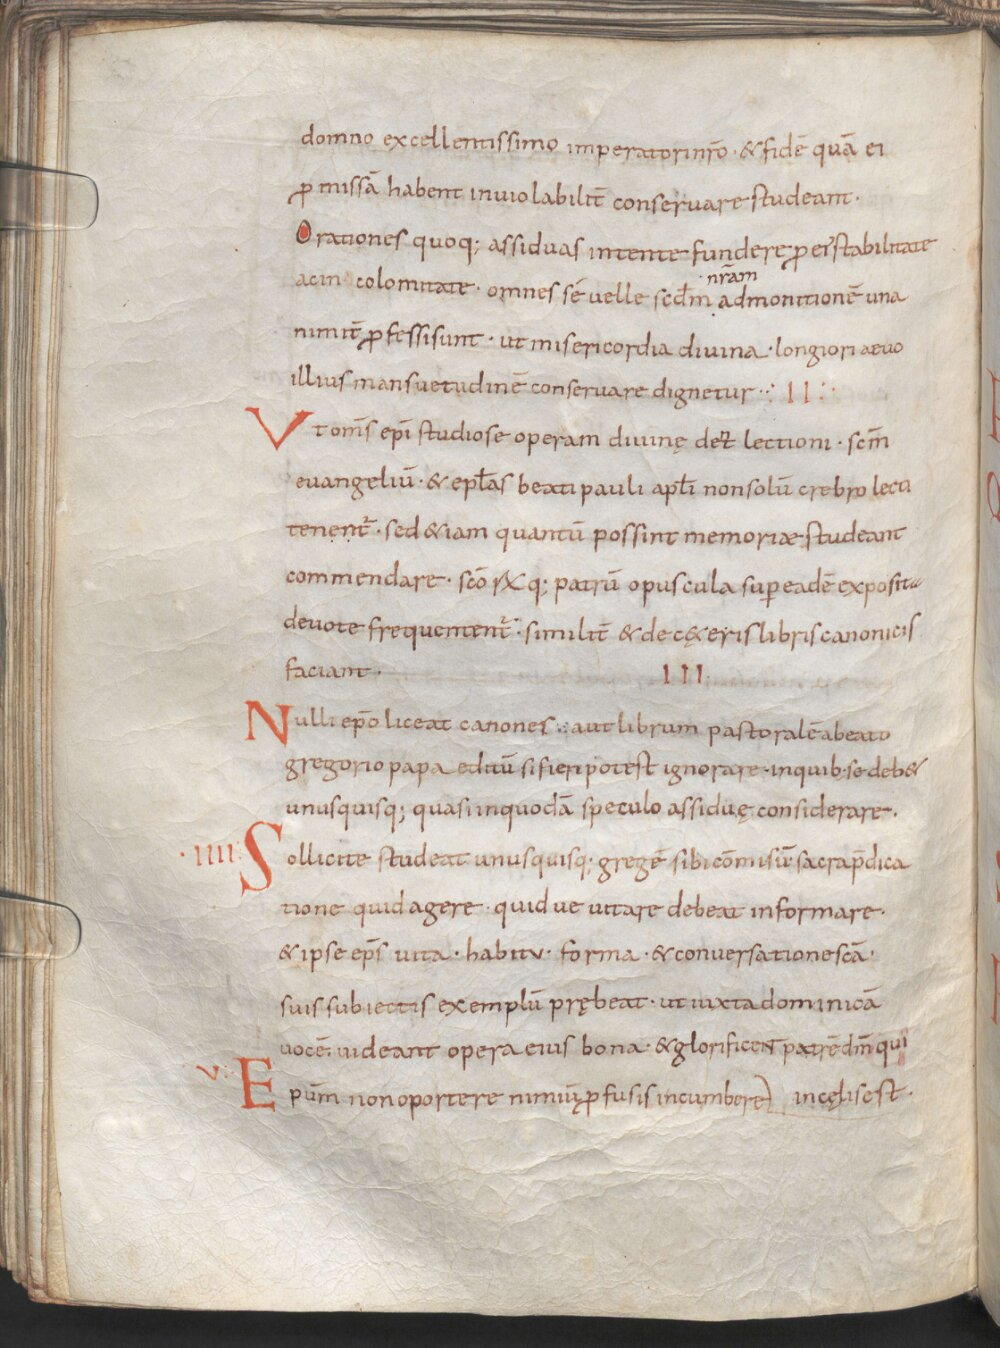 domno excellentissimo imperatori nr̄o · & fidē quā ei
ꝓmissā habent inviolabilit̄ conservare studeant ·
Orationes quoq; assiduas intente fundere ꝓ ei' stabilitate
ac in colomitate · omnes sē velle scd̄m nr̄am admonitionē una
nimit̄ ꝓfessi sunt · ut misericordia divina · longiori aevo
illius mansuetudinē conservare dignetur · II ·
Vt om̄s ep̄i studiose operam divinę det lectioni · scm̄
evangeliū · & epl̄as beati pauli apl̄i non solū crebro lecti
tenent̄ · sed & iam quantū possint memoriæ studeant
commendare · scōrꝝ q; patrū opuscula super eadē exposita
devote frequentent̄ · similit̄ & de c&eris libris canonicis
faciant · III ·
Nulli ep̄o liceat canones · aut librum pastoralē a beato
gregorio papa editū si fieri potest ignorare · in quib· se deb&
unusquisq; quasi in quodā speculo assiduę considerare ·
· IIII · Sollicite studeat unusquisq; gregē sibi cōmisū sacra p̄dica
tione quid agere · quid ve vitare debeat informare ·
& ipse ep̄s vita · habitu · forma · & conversatione scā ·
suis subiectis exemplū prębeat · ut iuxta dominicā
vocē videant opera eius bona · & glorificent patrē dn̄m qui
v · Epūm non oportere nimiū ꝓfusis incumbere) in cęlis est ·